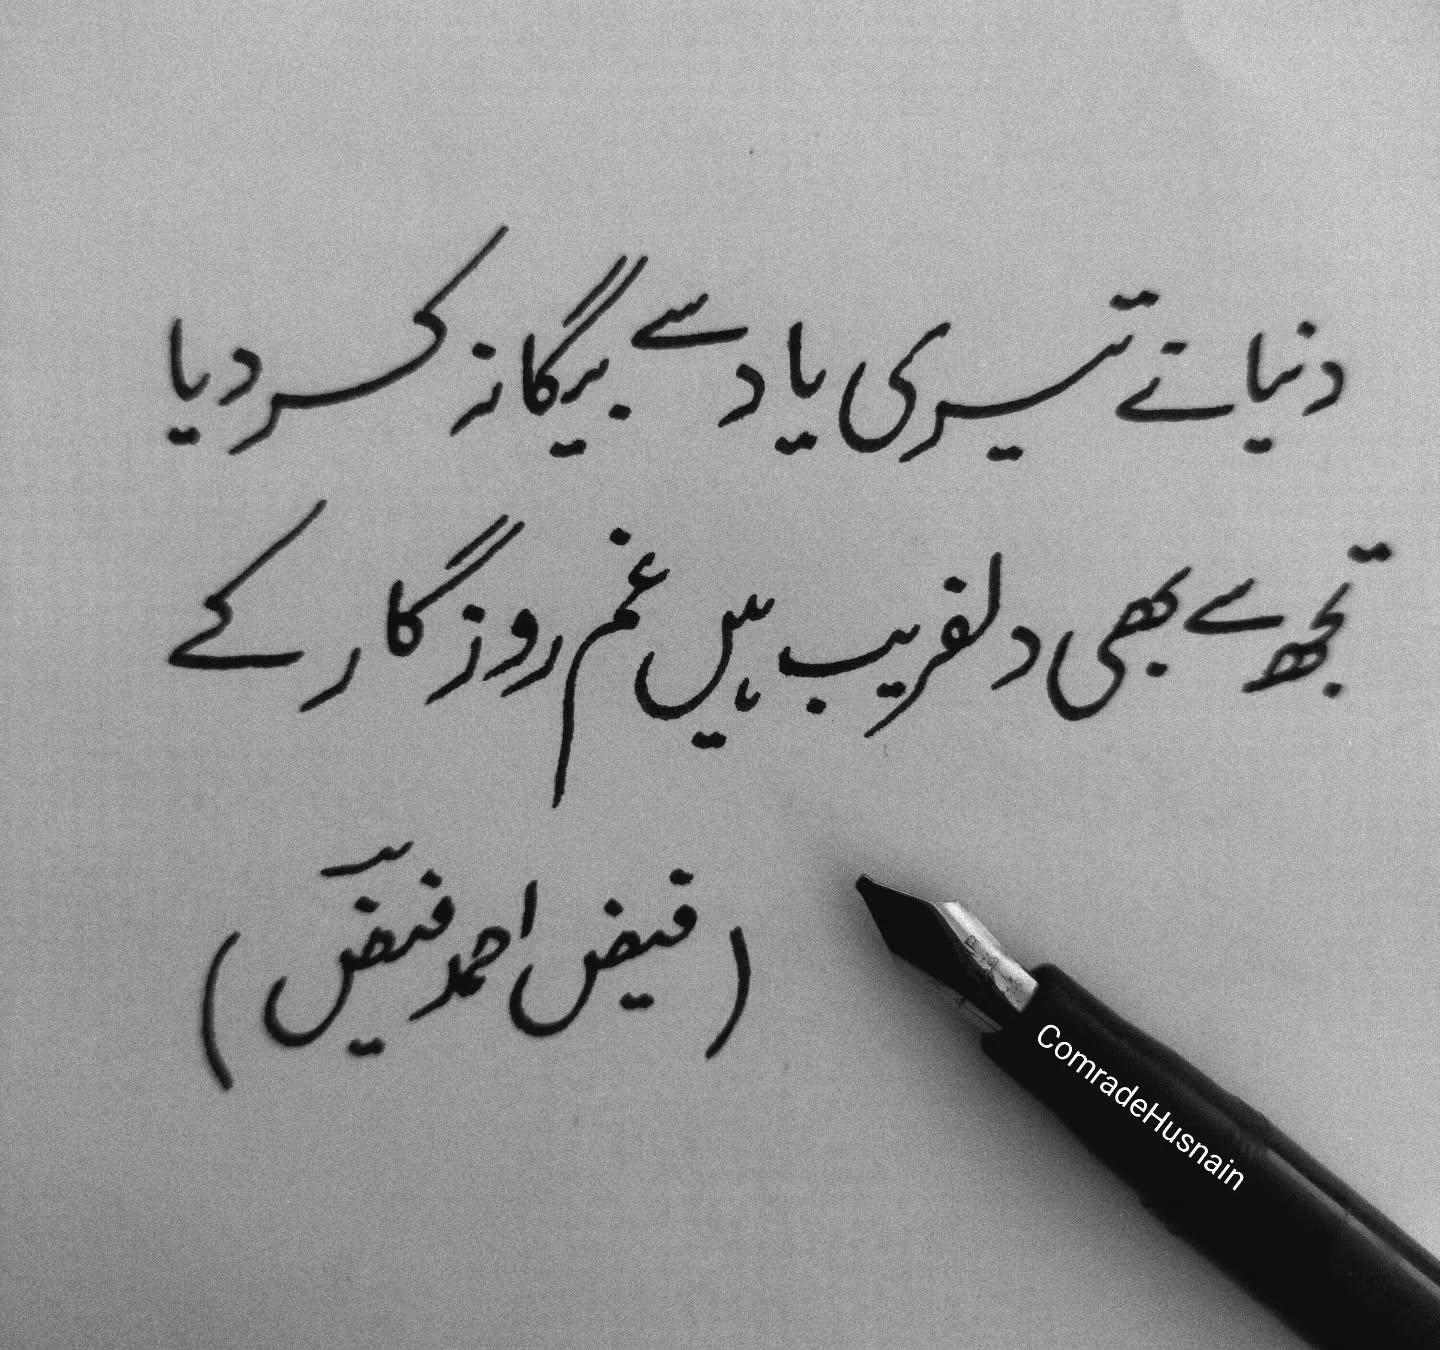 دنیا نے تیری یاد سے بیگانہ کر دیا
تجھ سے بھی دلفریب ہیں غم روزگار کے
(فیض احمد فیضؔ)
ComradeHusnain